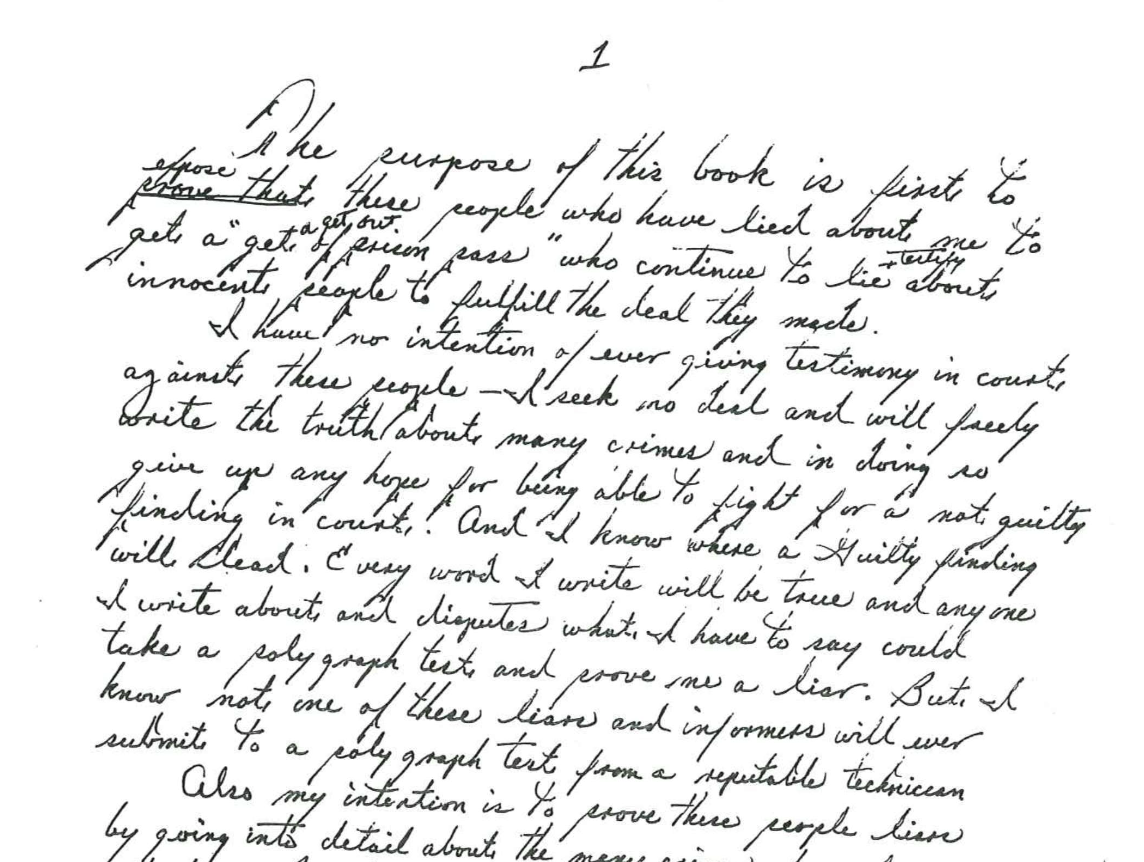 1
The purpose of this book is first to
expose
prove that these people who have lied about me to
a get out
get a "get of prison pass" who continue to lie + testify about
innocent people to fulfill the deal they made.
I have no intention of ever giving testimony in court
against these people — I seek no deal and will freely
write the truth about many crimes and in doing so
give up any hope for being able to fight for a not guilty
finding in court. And I know where a Guilty finding
will lead. Every word I write will be true and anyone
I write about and disputes what I have to say could
take a polygraph test and prove me a liar. But I
know not one of these liars and informers will ever
submit to a polygraph test from a reputable technician
Also my intention is to prove these people liars
by going into detail about the many